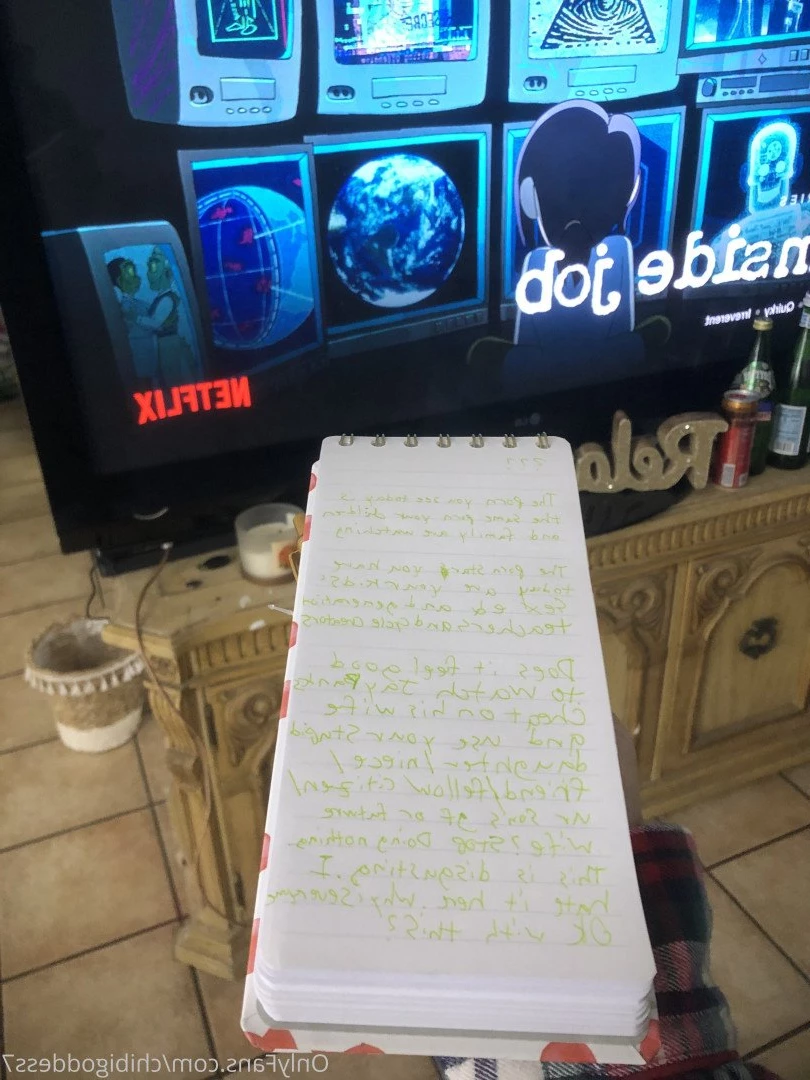 SECRET
inside job
Quirky • Irreverent
NETFLIX
Relo
???
The Porn you see today is
the same porn your children
and family are watching
The Porn stars you have
today are your kids'
sex ed and generation
teachers and cycle creators
Does it feel good
to watch Jay Banks
Cheat on his wife
and use your stupid
daughter/niece/
friend/fellow citizen/
ur son's gf or future
wife? Stop Doing nothing
This is disgusting. I
hate it here. why is everyone
OK with this?
OnlyFans.com/chibigoddess7